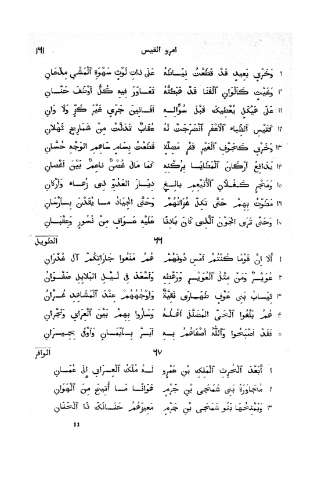 امرو القيس
وَخَرْقٍ بَعِيدٍ قَدْ قَطَعْتُ نِيَاطَهُ عَلَى ذَاتِ لَوْثٍ سَهْوَةِ المَشْيِ مِذْعَانِ
وَغَيْثٍ كَأَلْوَانِ الفَنَا قَدْ هَبَطْتُهُ تَعَاوَرَ فِيهِ كُلُّ أَوْطَفَ حَنَّانِ
عَلَى هَيْكَلٍ يُعْطِيكَ قَبْلَ سُؤَالِهِ أَفَانِينَ جَرْيٍ غَيْرِ كَزٍّ وَلَا وَانِ
كَتَيْسِ الظِّبَاءِ الأَعْفَرِ انْضَرَجَتْ لَهُ عُقَابٌ تَدَلَّتْ مِنْ شَمَارِيخِ ثَهْلَانِ
وَخَرْقٍ كَجَوْفِ العَيْرِ قَفْرٍ مَضَلَّةٍ قَطَعْتُ بِسَامٍ سَاهِمِ الوَجْهِ حُسَّانِ
يُدَافِعُ أَرْكَانَ المَطَايَا بِرُكْنِهِ كَمَا مَالَ غُصْنٌ نَاعِمٌ بَيْنَ أَغْصَانِ
وَمَجْرٍ كَغُلَّانِ الأُنَيْعِمِ بَالِغٍ دِيَارَ العَدُوِّ ذِي زُهَاءٍ وَأَرْكَانِ
مَطَوْتُ بِهِمْ حَتَّى تَكِلَّ غُزَاتُهُمْ وَحَتَّى الجِيَادُ مَا يُقَدْنَ بِأَرْسَانِ
وَحَتَّى تَرَى الجَوْنَ الَّذِي كَانَ بَادِنًا عَلَيْهِ عَوَافٍ مِنْ نُسُورٍ وَعِقْبَانِ
٦٦ الطويل
١ أَلَا إِنَّ قَوْمًا كُنْتُمُ أَمْسِ دُونَهُمْ هُمُ مَنَعُوا جَارَاتِكُمْ آلَ غُدْرَانِ
٢ عُوَيْرٌ وَمَنْ مِثْلُ العُوَيْرِ وَرَهْطِهِ وَأَسْعَدَ فِي لَيْلِ البَلَابِلِ صَفْوَانُ
٣ ثِيَابُ بَنِي عَوْفٍ طَهَارَى نَقِيَّةٌ وَأَوْجُهُهُمْ عِنْدَ المَشَاهِدِ غُرَّانُ
٤ هُمُ بَلَّغُوا الحَيَّ المُضَلَّلَ أَهْلَهُ وَسَارُوا بِهِمْ بَيْنَ العِرَاقِ وَنَجْرَانِ
٥ فَقَدْ أَصْبَحُوا وَاللَّهُ أَصْفَاهُمُ بِهِ أَبَرَّ بِأَيْمَانٍ وَأَوْفَى بِجِيرَانِ
٦٧ الوافر
١ أَبَعْدَ الحَرْثِ المَلِكِ بْنِ عَمْرٍو لَهُ مُلْكُ العِرَاقِ إِلَى عُمَانِ
٢ مُجَاوَرَةً بَنِي شَمَجَى بْنِ جَرْمٍ هَوَانًا مَا أُتِيحَ مِنَ الهَوَانِ
٣ وَيَمْنَحُهَا بَنُو شَمَجَى بْنِ جَرْمٍ مَعِيزَهُمُ حَنَانَكَ ذَا الحَنَانِ